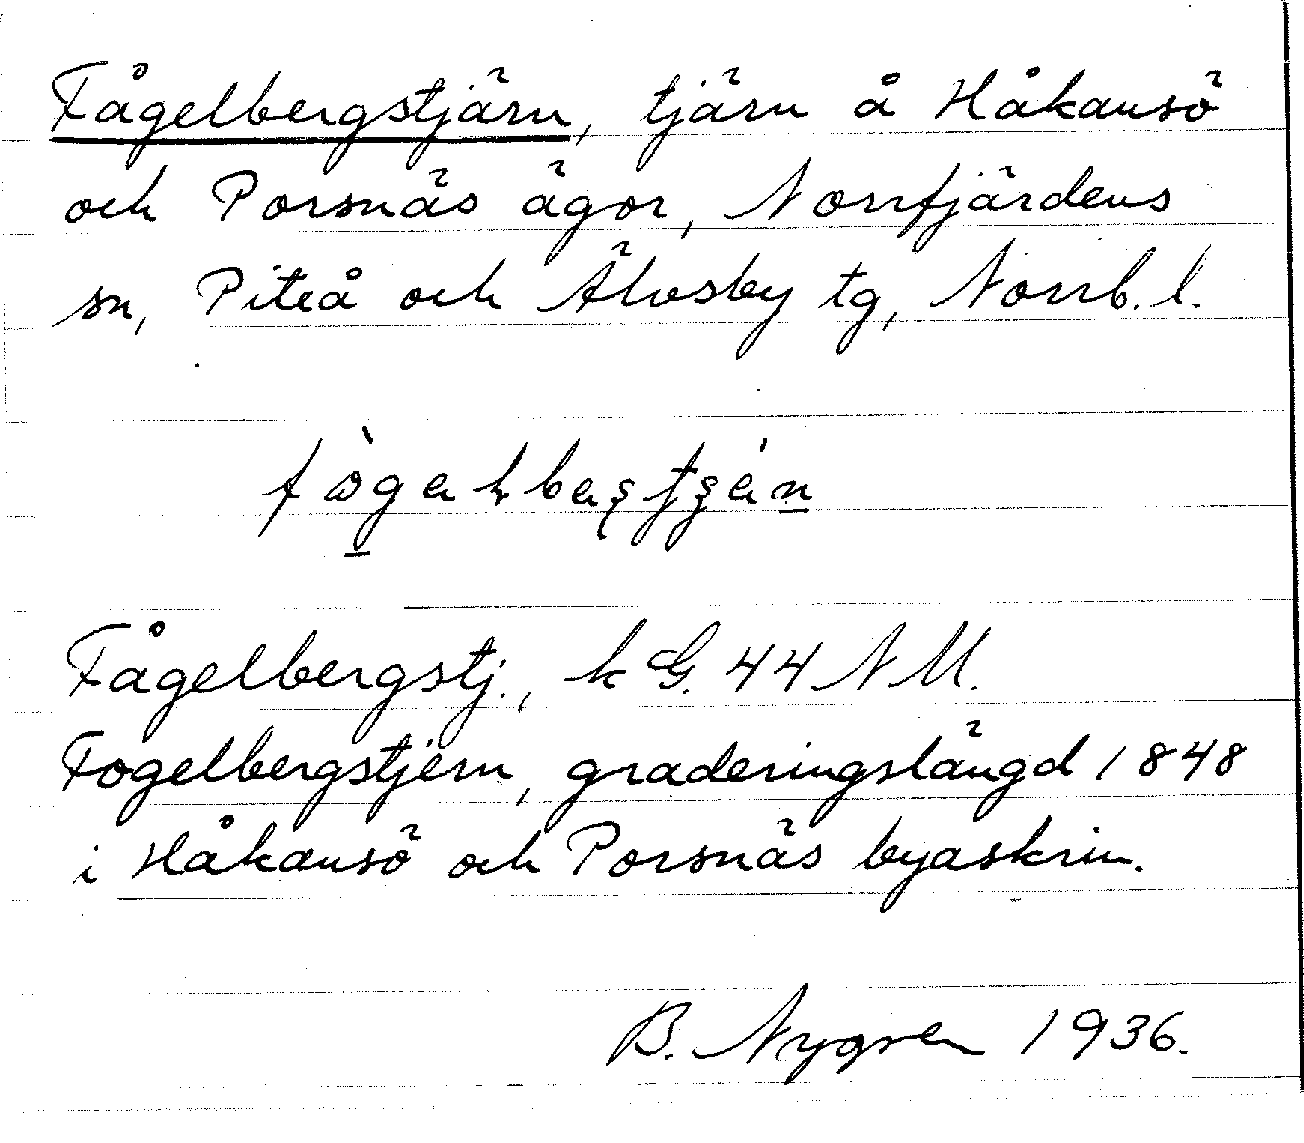 Fågelbergstjärn, tjärn å Håkansö
och Porsnäs ägor, Norrfjärdens
sn, Piteå och Älvsby tg, Norrb. l.
Fågelbergstj., k G. 44 N M.
Fogelbergstjern, graderingslängd 1848
i Håkansö och Porsnäs byaskrin.
B. Nygren 1936.